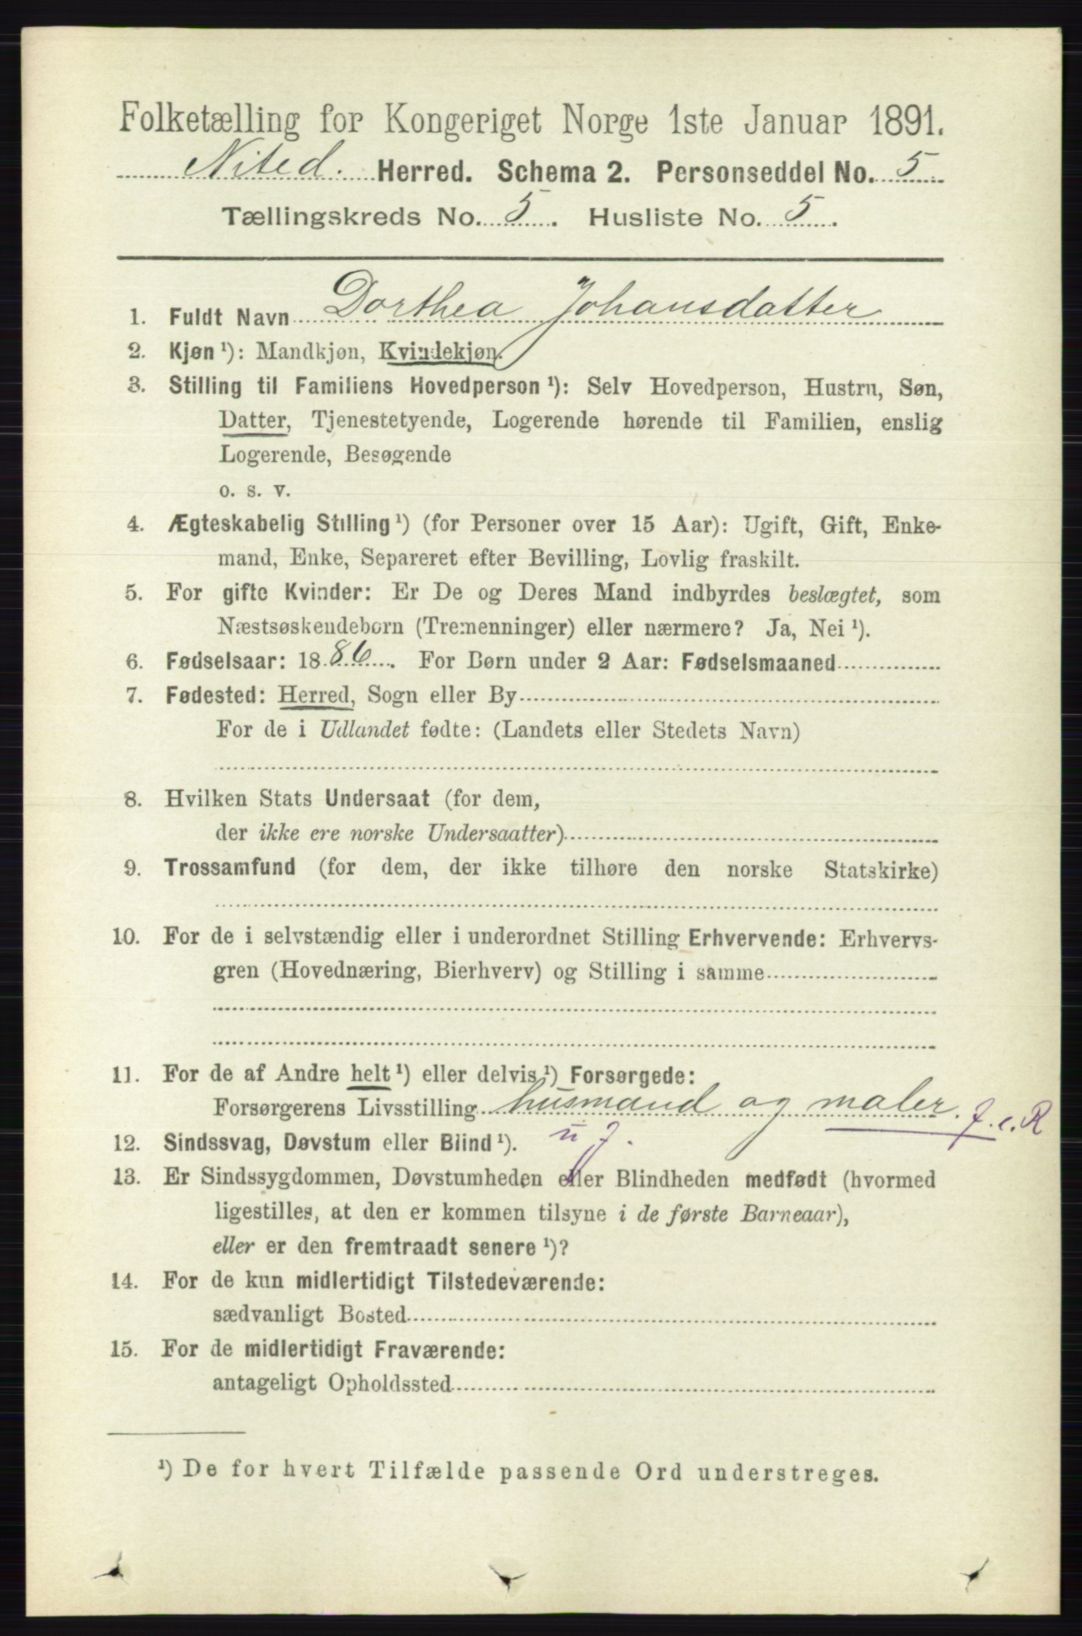 Folketælling for Kongeriget Norge 1ste Januar 1891.
Nited. Herred. Schema 2. Personseddel No. 5
Tællingskreds No. 5. Husliste No. 5.
1. Fuldt Navn Dorthea Johansdatter
2. Kjøn ¹): Mandkjøn, Kvindekjøn.
3. Stilling til Familiens Hovedperson ¹): Selv Hovedperson, Hustru, Søn,
Datter, Tjenestetyende, Logerende hørende til Familien, enslig
Logerende, Besøgende
o. s. v.
4. Ægteskabelig Stilling ¹) (for Personer over 15 Aar): Ugift, Gift, Enke-
mand, Enke, Separeret efter Bevilling, Lovlig fraskilt.
5. For gifte Kvinder: Er De og Deres Mand indbyrdes beslægtet, som
Næstsøskendebørn (Tremenninger) eller nærmere? Ja, Nei ¹).
6. Fødselsaar: 1886. For Børn under 2 Aar: Fødselsmaaned
7. Fødested: Herred, Sogn eller By
For de i Udlandet fødte: (Landets eller Stedets Navn)
8. Hvilken Stats Undersaat (for dem,
der ikke ere norske Undersaatter)
9. Trossamfund (for dem, der ikke tilhøre den norske Statskirke)
10. For de i selvstændig eller i underordnet Stilling Erhvervende: Erhvervs-
gren (Hovednæring, Bierhverv) og Stilling i samme
11. For de af Andre helt ¹) eller delvis ¹) Forsørgede:
Forsørgerens Livsstilling husmand og maler. J. e. R
12. Sindssvag, Døvstum eller Blind ¹). u J.
13. Er Sindssygdommen, Døvstumheden eller Blindheden medfødt (hvormed
ligestilles, at den er kommen tilsyne i de første Barneaar),
eller er den fremtraadt senere ¹)?
14. For de kun midlertidigt Tilstedeværende:
sædvanligt Bosted
15. For de midlertidigt Fraværende:
antageligt Opholdssted
¹) De for hvert Tilfælde passende Ord understreges.